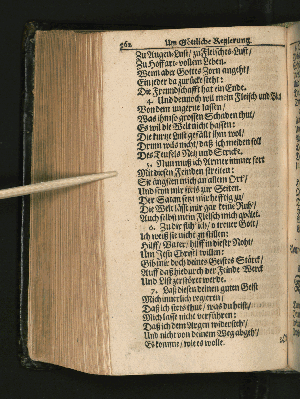 562 Um Göttliche Regierung.
Zu Augen-Lust / zu Fleisches-Lust /
Zu Hoffart-vollem Leben.
Wenn aber Gottes Zorn angeht /
Ein jeder da zurücke steht:
Die Freundschafft hat ein Ende.
4. Und dennoch will mein Fleisch und
Von dem ungerne lassen /
Was ihm so grossen Schaden thut /
Es wil die Welt nicht hassen:
Die kurtze Lust gefällt ihm wol /
Drum wäs nicht / daß ich meiden soll
Des Teufels Netz und Stricke.
5. Nun muß ich Armer immer fort
Mit diesen Feinden streiten:
Sie ängsten mich an allem Ort /
Und seyn mir stets zur Seiten.
Der Satan setzt mir hefftig zu
Die Welt lässt mir gar keine Ruh /
Auch selbst mein Fleisch mich
6. Zu dir flieh ich / o treuer Gott /
Ich weiß sie nicht zu stillen:
Hilff / Vater / hilff in dieser Noht /
Um Jesu Christi willen:
Gib mir doch deines Geistes Stärck /
Auff daß hiedurch der Feinde Werck
Und List zerstöret werde.
7. Laß diesen deinen guten Geist
Mich innerlich regieren /
Daß ich stets thu / was du heist /
Mich lasse nicht verführen:
Daß ich dem Argen widersteh /
Und nicht von deinem Weg abgeh /
Es komme / wie es wolle.